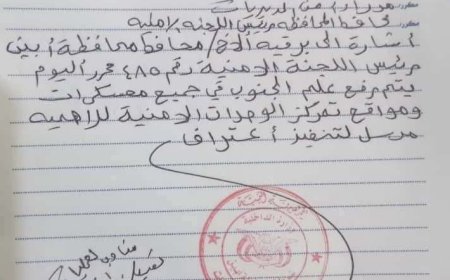 محافظ المحافظة رئيس اللجنة الامنية
أشارة الى برقية الاخ/محافظ محافظة أبين
رئيس اللجنة الامنية رقم ٤٨٥ محرر اليوم
يتم رفع علم الجنوب في جميع معسكرات
ومواقع تمركز الوحدات الامنية للاهمية
مرسل لتنفيذ أعتراف
وزارة الداخلية